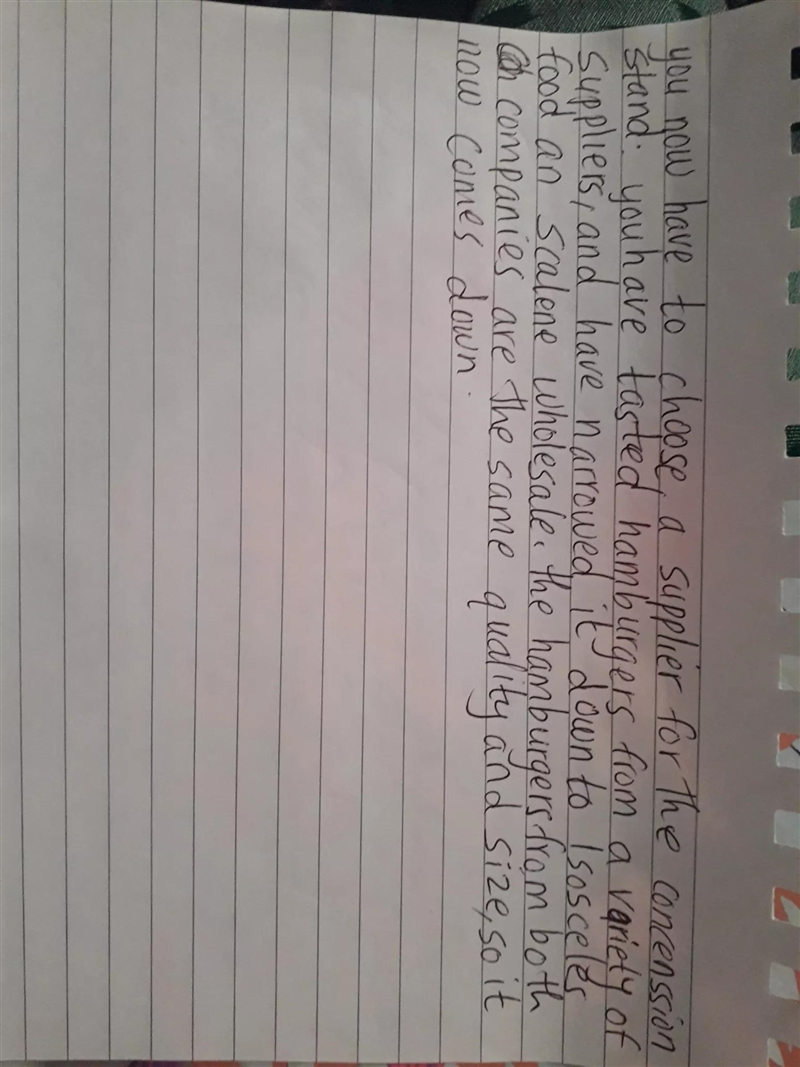 you now have to choose a supplier for the concenssion
stand. you have tasted hamburgers from a variety of
suppliers, and have narrowed it down to Isosceles
food an scalene wholesale. the hamburgers from both
companies are the same quality and size, so it
now comes down.